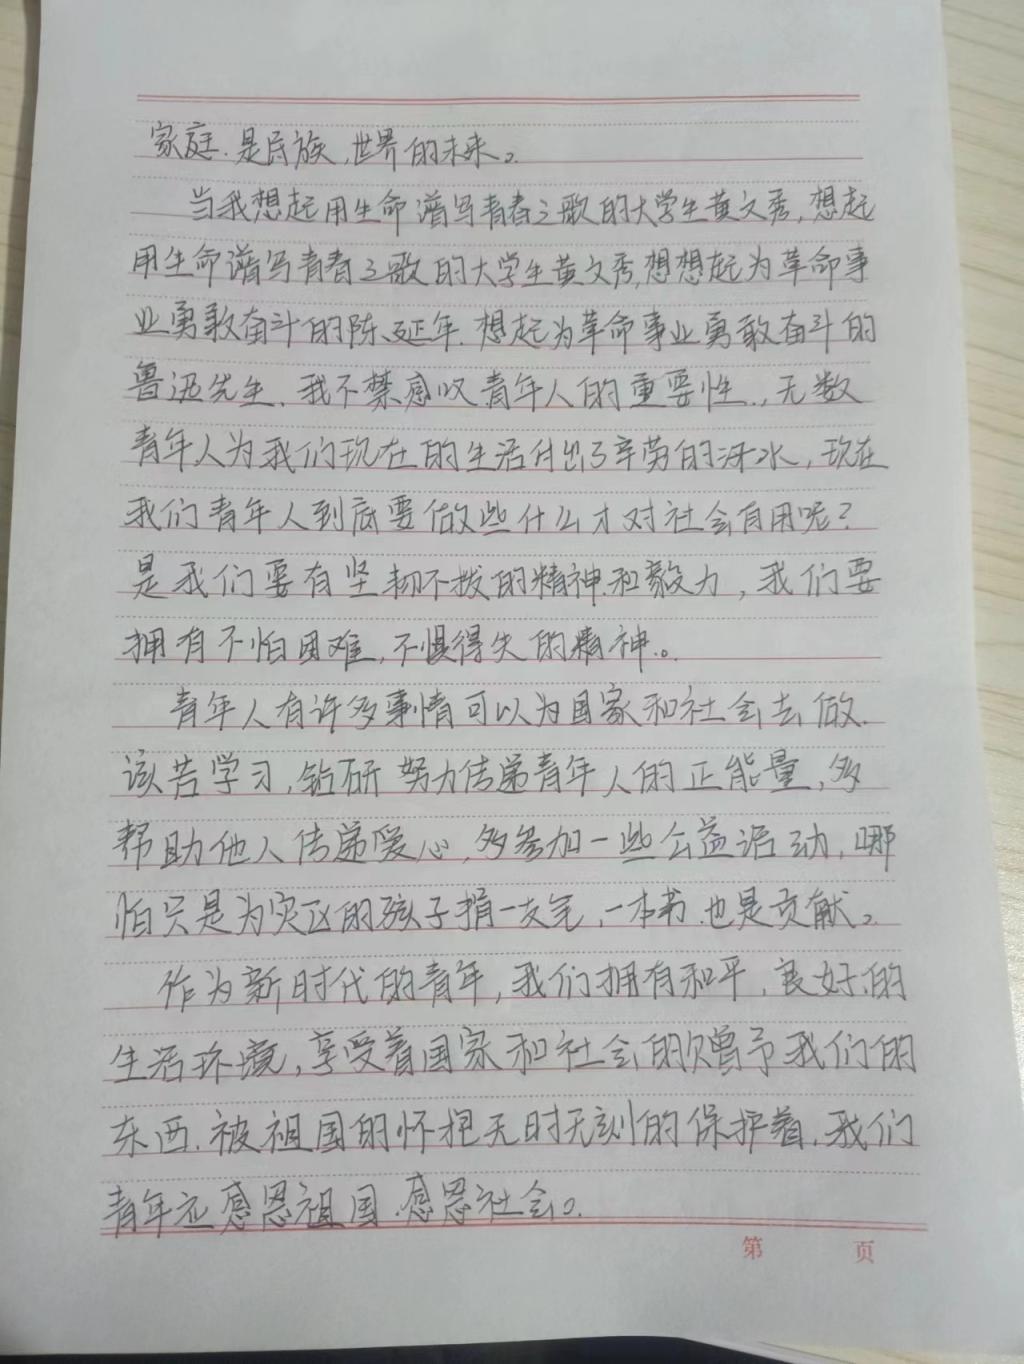 家庭、是民族、世界的未来。
当我想起用生命谱写青春之歌的大学生黄文秀,想起
用生命谱写青春之歌的大学生黄文秀,想想起为革命事
业勇敢奋斗的陈延年、想起为革命事业勇敢奋斗的
鲁迅先生、我不禁感叹青年人的重要性,无数
青年人为我们现在的生活付出了辛劳的汗水,现在
我们青年人到底要做些什么才对社会有用呢?
是我们要有坚韧不拔的精神和毅力,我们要
拥有不怕困难,不惧得失的精神。
青年人有许多事情可以为国家和社会去做、
该苦学习,钻研努力传递青年人的正能量,多
帮助他人传递爱心,多参加一些公益活动,哪
怕只是为灾区的孩子捐一支笔,一本书、也是贡献。
作为新时代的青年,我们拥有和平、良好的
生活环境,享受着国家和社会的赠予我们的
东西、被祖国的怀抱无时无刻的保护着、我们
青年应感恩祖国、感恩社会。
第 页